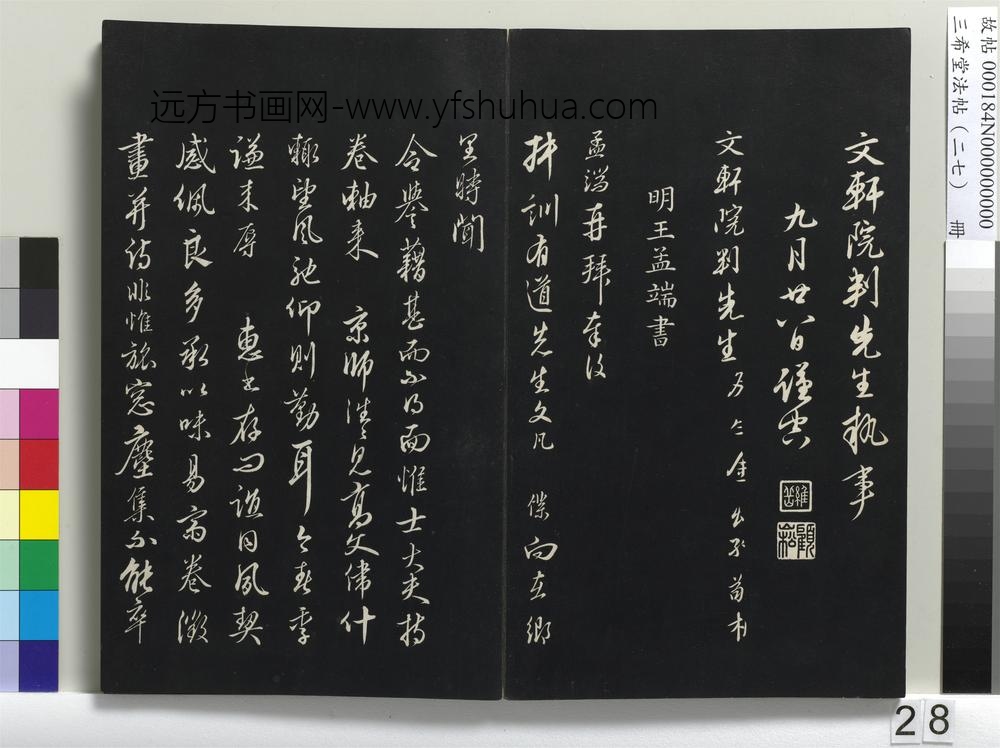 文軒院判先生執事
九月廿八日謹空
文軒院判先生
明王孟端書
孟端再拜奉復
拝訓有道先生文几 僕向在鄉
里時聞
令譽藉甚而不得面惟士大夫持
卷軸來 京師獲見高文偉什
輒望風馳仰則勤耳今春季
謙來辱 惠書存問誼同夙契
感佩良多承以味易齋卷徵
畫并詩非惟旅窓塵集不能率
远方书画网-www.yfshuhua.com
故帖 000184N000000000
三希堂法帖(二七) 冊
28